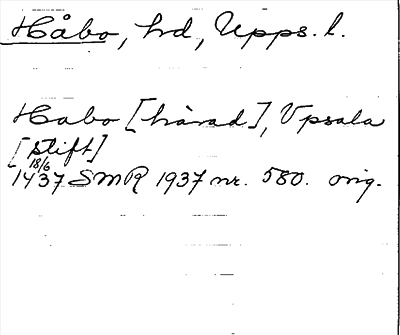 Håbo, hd, Upps. l.
Habo [härad], Vpsala
[stift]
18/6
1437 SMR 1937 nr. 580. orig.